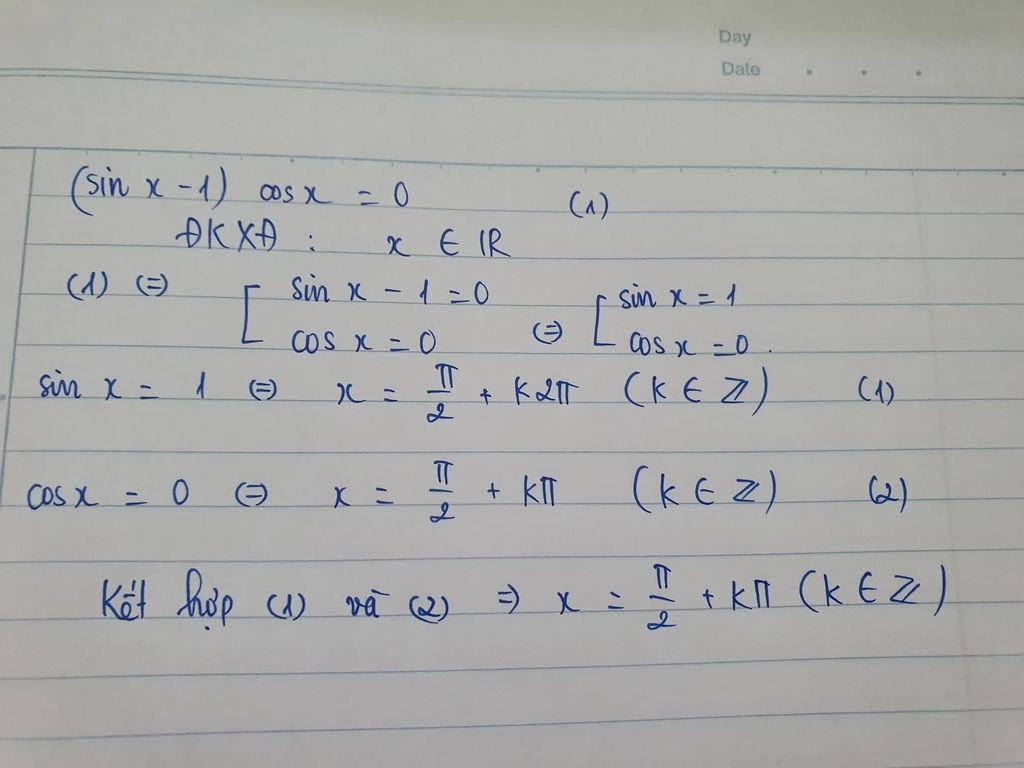 Day
Date . . .
(sin x - 1) cos x = 0 (1)
ĐKXĐ : x ∈ ℝ
(1) ⇔ [ sin x - 1 = 0 ⇔ [ sin x = 1
cos x = 0 cos x = 0 .
sin x = 1 ⇔ x = π/2 + k2π (k ∈ ℤ) (1)
cos x = 0 ⇔ x = π/2 + kπ (k ∈ ℤ) (2)
Kết hợp (1) và (2) ⇒ x = π/2 + kπ (k ∈ ℤ)